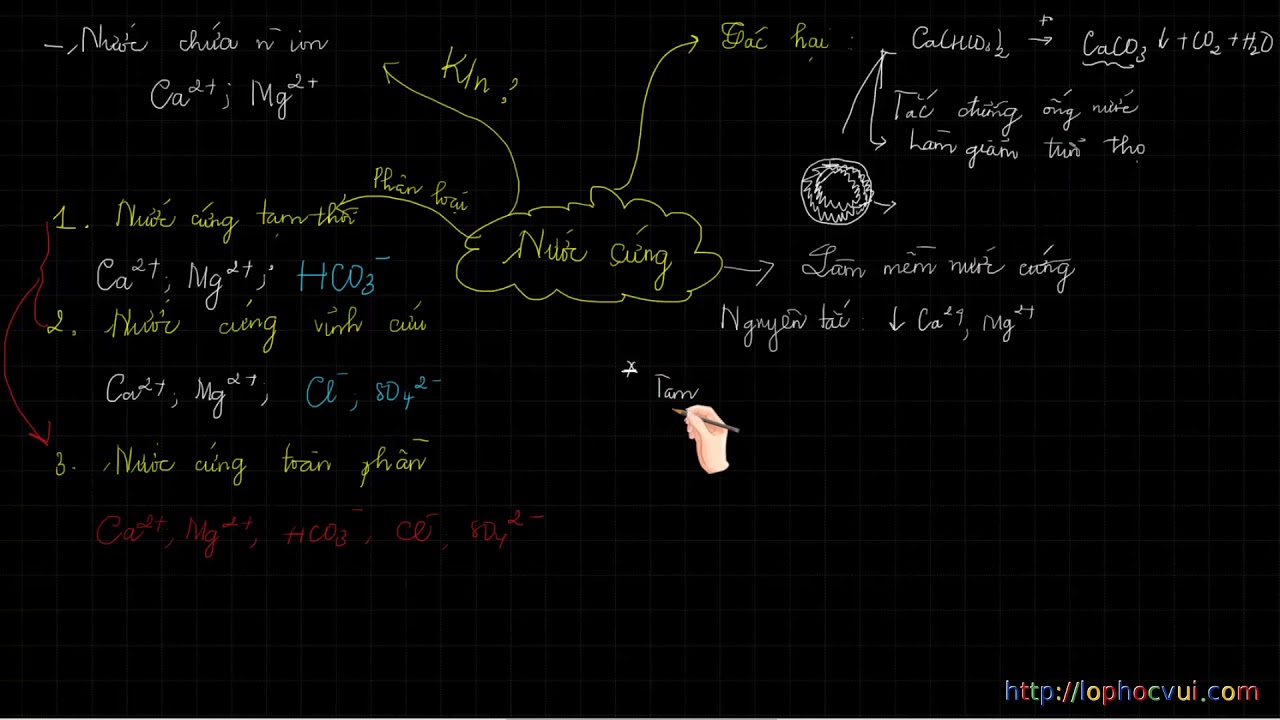 Nước chứa n ion
Ca²⁺; Mg²⁺
K/n?
Phân loại
1. Nước cứng tạm thời
Ca²⁺; Mg²⁺; HCO₃⁻
2. Nước cứng vĩnh cửu
Ca²⁺; Mg²⁺; Cl⁻; SO₄²⁻
3. Nước cứng toàn phần
Ca²⁺, Mg²⁺, HCO₃⁻, Cl⁻, SO₄²⁻
Nước cứng
Tác hại: Ca(HCO₃)₂ → CaCO₃↓ + CO₂ + H₂O
Tắc đường ống nước
Làm giảm tuổi thọ
Làm mềm nước cứng
Nguyên tắc: ↓ Ca²⁺, Mg²⁺
* Tam
http://lophocvui.com